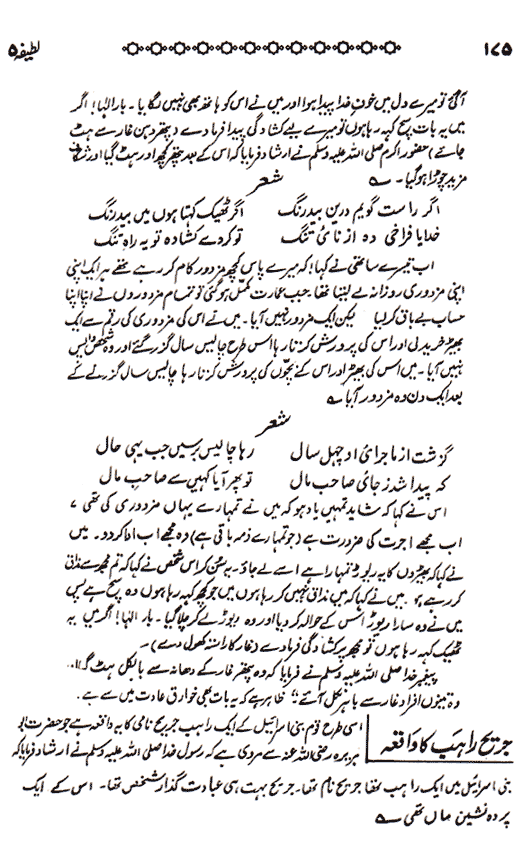 ۱۷۵ لطیفہ ۵
آگئی تو میرے دل میں خوف خدا پیدا ہوا اور میں نے اس کو ہاتھ بھی نہیں لگایا۔ بار الٰہا! اگر
میں یہ بات سچ کہہ رہا ہوں تو میرے لیے کشادگی پیدا فرما دے (پتھر دہن غار سے ہٹ
جائے) حضور اکرم صلی اللہ علیہ وسلم نے ارشاد فرمایا کہ اس کے بعد پتھر کچھ اور ہٹ گیا اور شگاف
مزید چوڑا ہوگیا۔
شعر
اگر راست گویم درین بیدرنگ اگر ٹھیک کہتا ہوں میں بیدرنگ
خدایا فراخی دہ از نائ تنگ تو کردے کشادہ تو یہ راہ تنگ
اب تیسرے ساتھی نے کہا! کہ میرے پاس کچھ مزدور کام کر رہے تھے ہر ایک اپنی
اپنی مزدوری روزانہ لے لیتا تھا، جب عمارت مکمل ہوگئی تو تمام مزدوروں نے اپنا اپنا
حساب بے باق کر لیا لیکن ایک مزدور نہیں آیا۔ میں نے اس کی مزدوری کی رقم سے ایک
بھیڑ خرید لی اور اس کی پرورش کرتا رہا اس طرح چالیس سال گزر گئے اور وہ شخص واپس
نہیں آیا۔ میں اس کی بھیڑ اور اس کے بچوں کی پرورش کرتا رہا چالیس سال گزرنے کے
بعد ایک دن وہ مزدور آیا
شعر
گزشت از ماجرائ او چہل سال رہا چالیس برسیں جب یہی حال
کہ پیدا شد ز جائ صاحب مال تو پھر آیا کہیں سے صاحب مال
اس نے کہا کہ شاید تمہیں یاد ہو کہ میں نے تمہارے یہاں مزدوری کی تھی
اب مجھے اجرت کی ضرورت ہے (جو تمہارے ذمہ باقی ہے) وہ مجھے اب ادا کر دو۔ میں
نے کہا کہ بھیڑوں کا یہ ریوڑ تمہارا ہے اسے لے جاؤ۔ یہ سن کر اس شخص نے کہا کہ تم مجھ سے مذاق
کر رہے ہو۔ میں نے کہا کہ میں مذاق نہیں کر رہا ہوں میں جو کچھ کہہ رہا ہوں وہ سچ ہے پس
میں نے وہ سارا ریوڑ اس کے حوالہ کر دیا اور وہ ریوڑ لے کر چلا گیا۔ بار الٰہا! اگر میں یہ
ٹھیک کہہ رہا ہوں تو مجھ پر کشادگی فرما دے (غار کا راستہ کھول دے)۔
پیغمبر خدا صلی اللہ علیہ وسلم نے فرمایا کہ وہ پتھر غار کے دھانہ سے بالکل ہٹ گیا۔
وہ تینوں افراد غار سے باہر نکل آئے" ظاہر ہے کہ یہ بات بھی خوارق عادت میں سے ہے۔
جریح راہب کا واقعہ
اسی طرح قوم بنی اسرائیل کے ایک راہب جریح نامی کا یہ واقعہ ہے جو حضرت ابو
ہریرہ رضی اللہ عنہ سے مروی ہے کہ رسول خدا صلی اللہ علیہ وسلم نے ارشاد فرمایا کہ
بنی اسرائیل میں ایک راہب تھا جریح نام تھا۔ جریح بہت ہی عبادت گذار شخص تھا۔ اس کے ایک
پردہ نشین ماں تھی